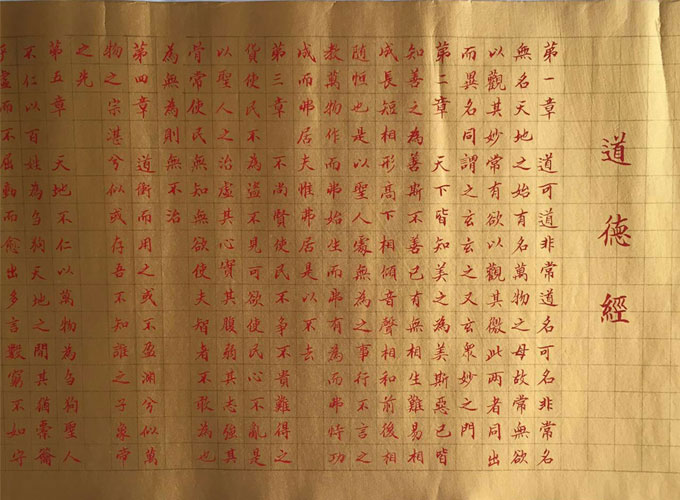 道德經
第一章 道可道非常道名可名非常名
無名天地之始有名萬物之母故常無欲
以觀其妙常有欲以觀其徼此兩者同出
而異名同謂之玄玄之又玄眾妙之門
第二章 天下皆知美之為美斯惡已皆
知善之為善斯不善已有無相生難易相
成長短相形高下相傾音聲相和前後相
隨恒也是以聖人處無為之事行不言之
教萬物作而弗始生而弗有為而弗恃功
成而弗居夫惟弗居是以不去
第三章 不尚賢使民不爭不貴難得之
貨使民不為盜不見可欲使民心不亂是
以聖人之治虛其心實其腹弱其志強其
骨常使民無知無欲使夫智者不敢為也
為無為則無不治
第四章 道衝而用之或不盈淵兮似萬
物之宗湛兮似或存吾不知誰之子象帝
之先
第五章 天地不仁以萬物為芻狗聖人
不仁以百姓為芻狗天地之間其猶橐籥
乎虛而不屈動而愈出多言數窮不如守